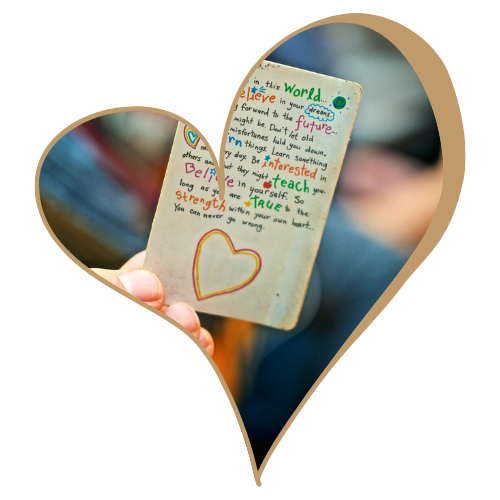 in this World...
elieve in your dreams
forward to the future
might be. Don't let old
misfortunes hold you down.
rn things. Learn something
ry day. Be interested in
others and but they might teach you.
Believe in yourself. So
long as you are TRUE to the
Strength within your own heart...
You can never go wrong.